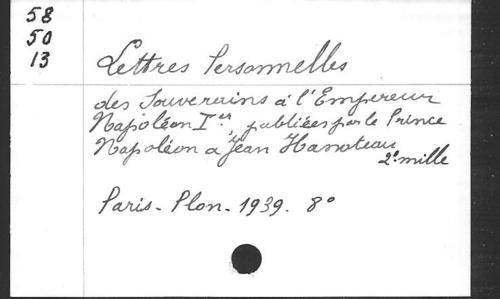 58
50
13
Lettres Personnelles
des Souverains à l'Empereur
Napoléon Ier, publiées par le Prince
Napoléon a Jean Hanoteau
2e mille
Paris - Plon - 1939. 8°